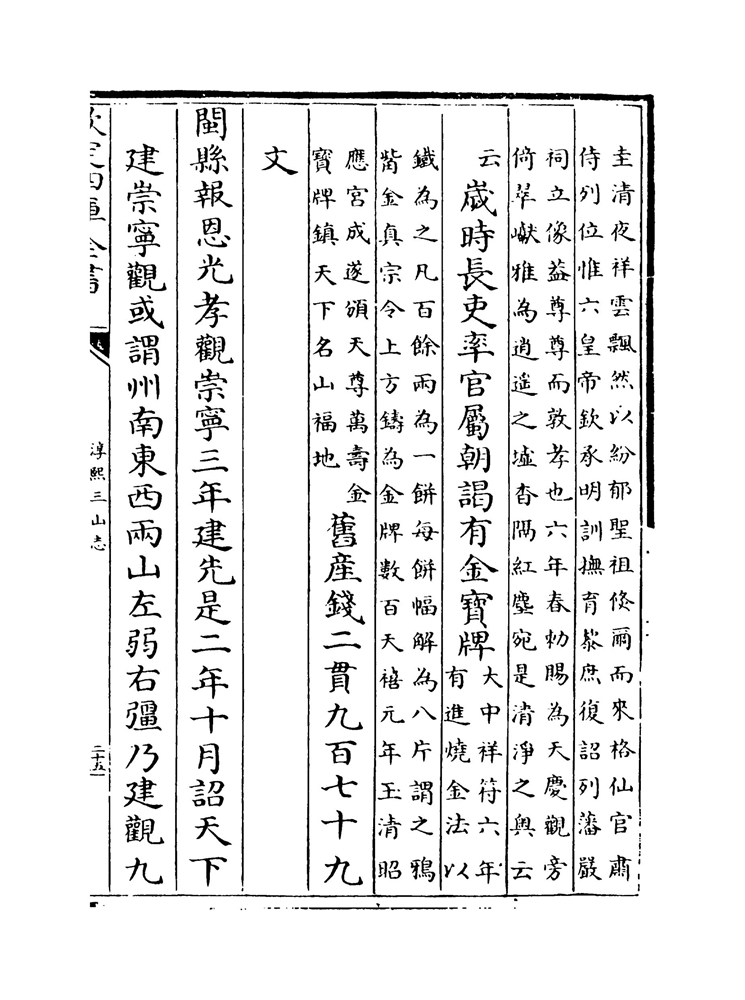 圭清夜祥雲飄然以紛郁聖祖倐爾而來格仙官肅
侍列位惟六皇帝欽承明訓撫育黎庶復詔列藩嚴
祠立像益尊尊而敦孝也六年春勅賜為天慶觀旁
倚翠巘雅為逍遥之墟杳隔紅塵宛是清淨之輿云
云歳時長吏率官屬朝謁有金寶牌大中祥符六年
有進燒金法以
鐵為之凡百餘兩為一餅每餅幅解為八片謂之鴉
觜金真宗令上方鑄為金牌數百天禧元年玉清昭
應宮成遂頒天尊萬壽金
寳牌鎮天下名山福地舊産錢二貫九百七十九
文
閩縣報恩光孝觀崇寧三年建先是二年十月詔天下
建崇寧觀或謂州南東西兩山左弱右彊乃建觀九
欽定四庫全書
淳熙三山志
二十五